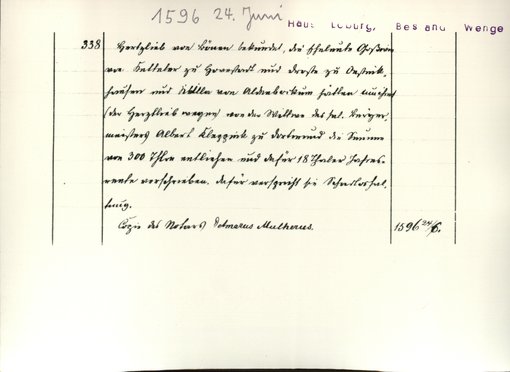 1596 24. Juni
Haus Loburg, Bestand Wenge
338 Hertzlieb von Bönen bekundet, die Eheleute Goswin
von Ketteler zu Hovestadt und Droste zu
hausen und von Aldenbockum hätten
(der Hertzlieb wegen) von der Wittwe des sel. Bürger-
meisters Albert Kleppink zu Dortmund die Summe
von 300 Thlr. entliehen und dafür 18 Thaler Jahres-
rente verschrieben. dafür verspricht sie Schadloshal-
tung.
Copie des Notars Detmarus Mulherus. 1596 24/6.